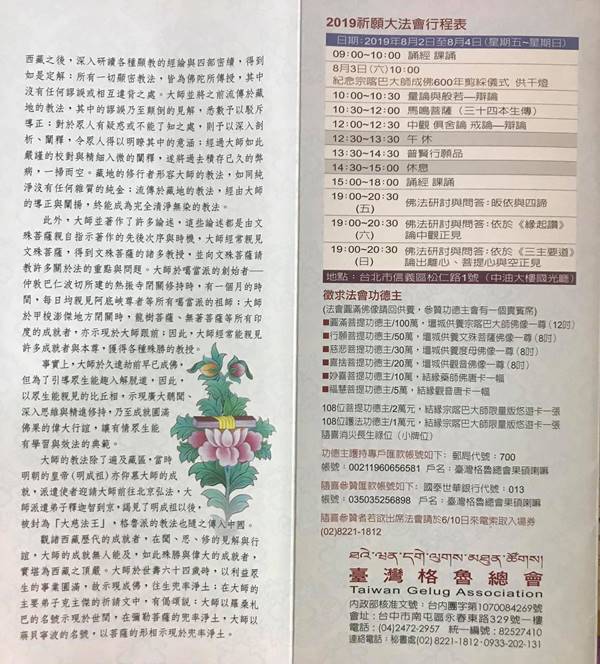 西藏之後，深入研讀各種顯教的經論與四部密續，得到
如是定解：所有一切顯密教法，皆為佛陀所傳授，其中
沒有任何謬誤或相互違背之處。大師並將之前流傳於藏
地的教法，其中的謬誤乃至顛倒的見解，悉數予以駁斥
導正；對於眾人有疑惑或不能了知之處，則予以深入剖
析、闡釋，令眾人得以明瞭其中的意涵；經過大師如此
嚴謹的校對與精細入微的闡釋，遂將過去積存已久的弊
病，一掃而空。藏地的修行者形容大師的教法，如同純
淨沒有任何雜質的純金；流傳於藏地的教法，經由大師
的導正與闡揚，終能成為完全清淨無染的教法。
此外，大師並著作了許多論述，這些論述都是由文
殊菩薩親自指示著作的先後次序與時機，大師經常親見
文殊菩薩，得到文殊菩薩的諸多教授，並向文殊菩薩請
教許多關於法的重點與問題。大師於噶當派的創始者──
仲敦巴仁波切所建的熱振寺閉關修持時，有一個月的時
間，每日均親見阿底峽尊者等所有噶當派的祖師；大師
於甲梭澎傑地方閉關時，龍樹菩薩、無著菩薩等所有印
度的成就者，亦示現於大師跟前；因此，大師經常能親見
許多成就者與本尊，獲得各種殊勝的教授。
事實上，大師於久遠劫前早已成佛，
但為了引導眾生能趣入解脫道，因此，
以眾生能親見的比丘相，示現廣大聽聞、
深入思維與精進修持，乃至成就圓滿
佛果的偉大行誼，讓有情眾生能
有學習與效法的典範。
大師的教法除了遍及藏區，當時
明朝的皇帝(明成祖)亦仰慕大師的成
就，派遣使者迎請大師前往北京弘法，大
師派遣弟子釋迦智到京，謁見了明成祖以後，
被封為「大慈法王」，格魯派的教法也隨之傳入中國。
觀諸西藏歷代的成就者，在聞、思、修的見解與行
誼，大師的成就無人能及，如此殊勝與偉大的成就者，
實堪為西藏之頂嚴。大師於世壽六十四歲時，以利益眾
生的事業圓滿，故示現成佛，往生兜率淨土；在大師的
主要弟子克主傑的祈請文中，有偈頌說：大師以羅桑札
巴的名號示現於世間，在彌勒菩薩的兜率淨土，大師以
蔣貝寧波的名號，以菩薩的形相示現於兜率淨土。
2019祈願大法會行程表
日期：2019年8月2日至8月4日(星期五~星期日)
09:00~10:00 誦經 課誦
8月3日(六)10:00
紀念宗喀巴大師成佛600年剪綵儀式 供千燈
10:00~10:30 量論與般若—辯論
10:30~12:00 馬鳴菩薩（三十四本生傳）
12:00~12:30 中觀 俱舍論 戒論—辯論
12:30~13:30 午 休
13:30~14:30 普賢行願品
14:30~15:00 休息
15:00~18:00 誦經 課誦
19:00~20:30 (五) 佛法研討與問答：皈依與四諦
19:00~20:30 (六) 佛法研討與問答：依於《緣起讚》論中觀正見
19:00~20:30 (日) 佛法研討與問答：依於《三主要道》論出離心、菩提心與空正見
地點：台北市信義區松仁路1號（中油大樓國光廳）
徵求法會功德主
(法會圓滿佛像請回供養，參贊功德主會有一個貴賓席)
■圓滿菩提功德主/100萬，壇城供養宗喀巴大師佛像一尊(12吋)
■行願菩提功德主/50萬，壇城供養文殊菩薩佛像一尊(8吋)
■慈悲菩提功德主/30萬，壇城供養度母佛像一尊(8吋)
■喜捨菩提功德主/20萬，壇城供養觀音佛像一尊(8吋)
■妙喜菩提功德主/10萬，結緣藥師佛唐卡一幅
■福慧菩提功德主/5萬，結緣觀音唐卡一幅
108位菩提功德主/2萬元，結緣宗喀巴大師限量版悠遊卡一張
108位護法功德主/1萬元，結緣宗喀巴大師限量版悠遊卡一張
隨喜消災長生祿位（小牌位）
功德主護持專戶匯款帳號如下：郵局代號：700
帳號：00211960656581 戶名：臺灣格魯總會果碩喇嘛
隨喜參贊匯款帳號如下：國泰世華銀行代號：013
帳號：035035256898 戶名：臺灣格魯總會果碩喇嘛
隨喜參贊者若欲出席法會請於6/10日來電索取入場券
(02)8221-1812
臺灣格魯總會
Taiwan Gelug Association
內政部核准文號：台內團字第1070084269號
會址：台中市南屯區永春東路329號一樓
電話：(04)2472-2957 統一編號：82527410
連絡電話：秘書處(02)8221-1812、0933-202-131